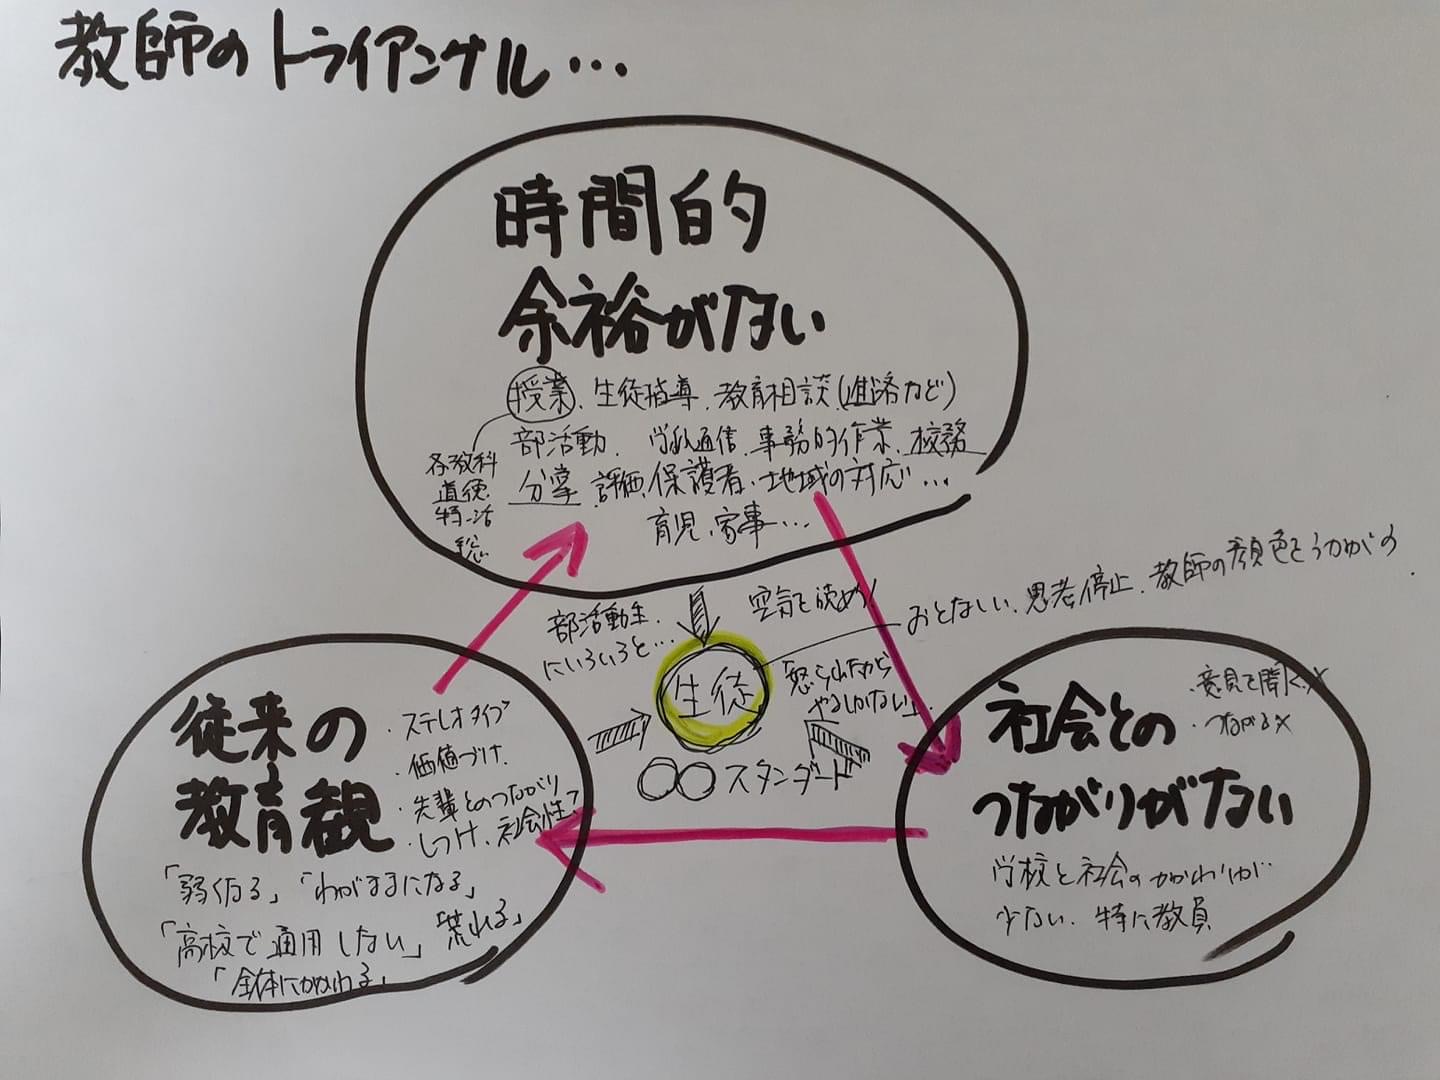 教師のトライアングル…
時間的
余裕がない
授業、生徒指導、教育相談(進路など)
部活動、学級通信、事務的作業、校務
分掌、評価、保護者、地域の対応…
育児、家事…
各教科
道徳
特活
総
部活動を
にいろいろと…
空気を読め!
おとなしい、思考停止、教師の顔色をうかがう
生徒
「怒られたから
やるしかない」
○○スタンダード
従来の
教育観
・ステレオタイプ
・価値づけ
・先輩とのつながり
・しつけ、社会性?
「弱くなる」「わがままになる」
「高校で通用しない」「荒れる」
「全体にかかわる」
社会との
つながりがない
・意見を聞く×
・つながる×
学校と社会のかかわりが
少ない、特に教員